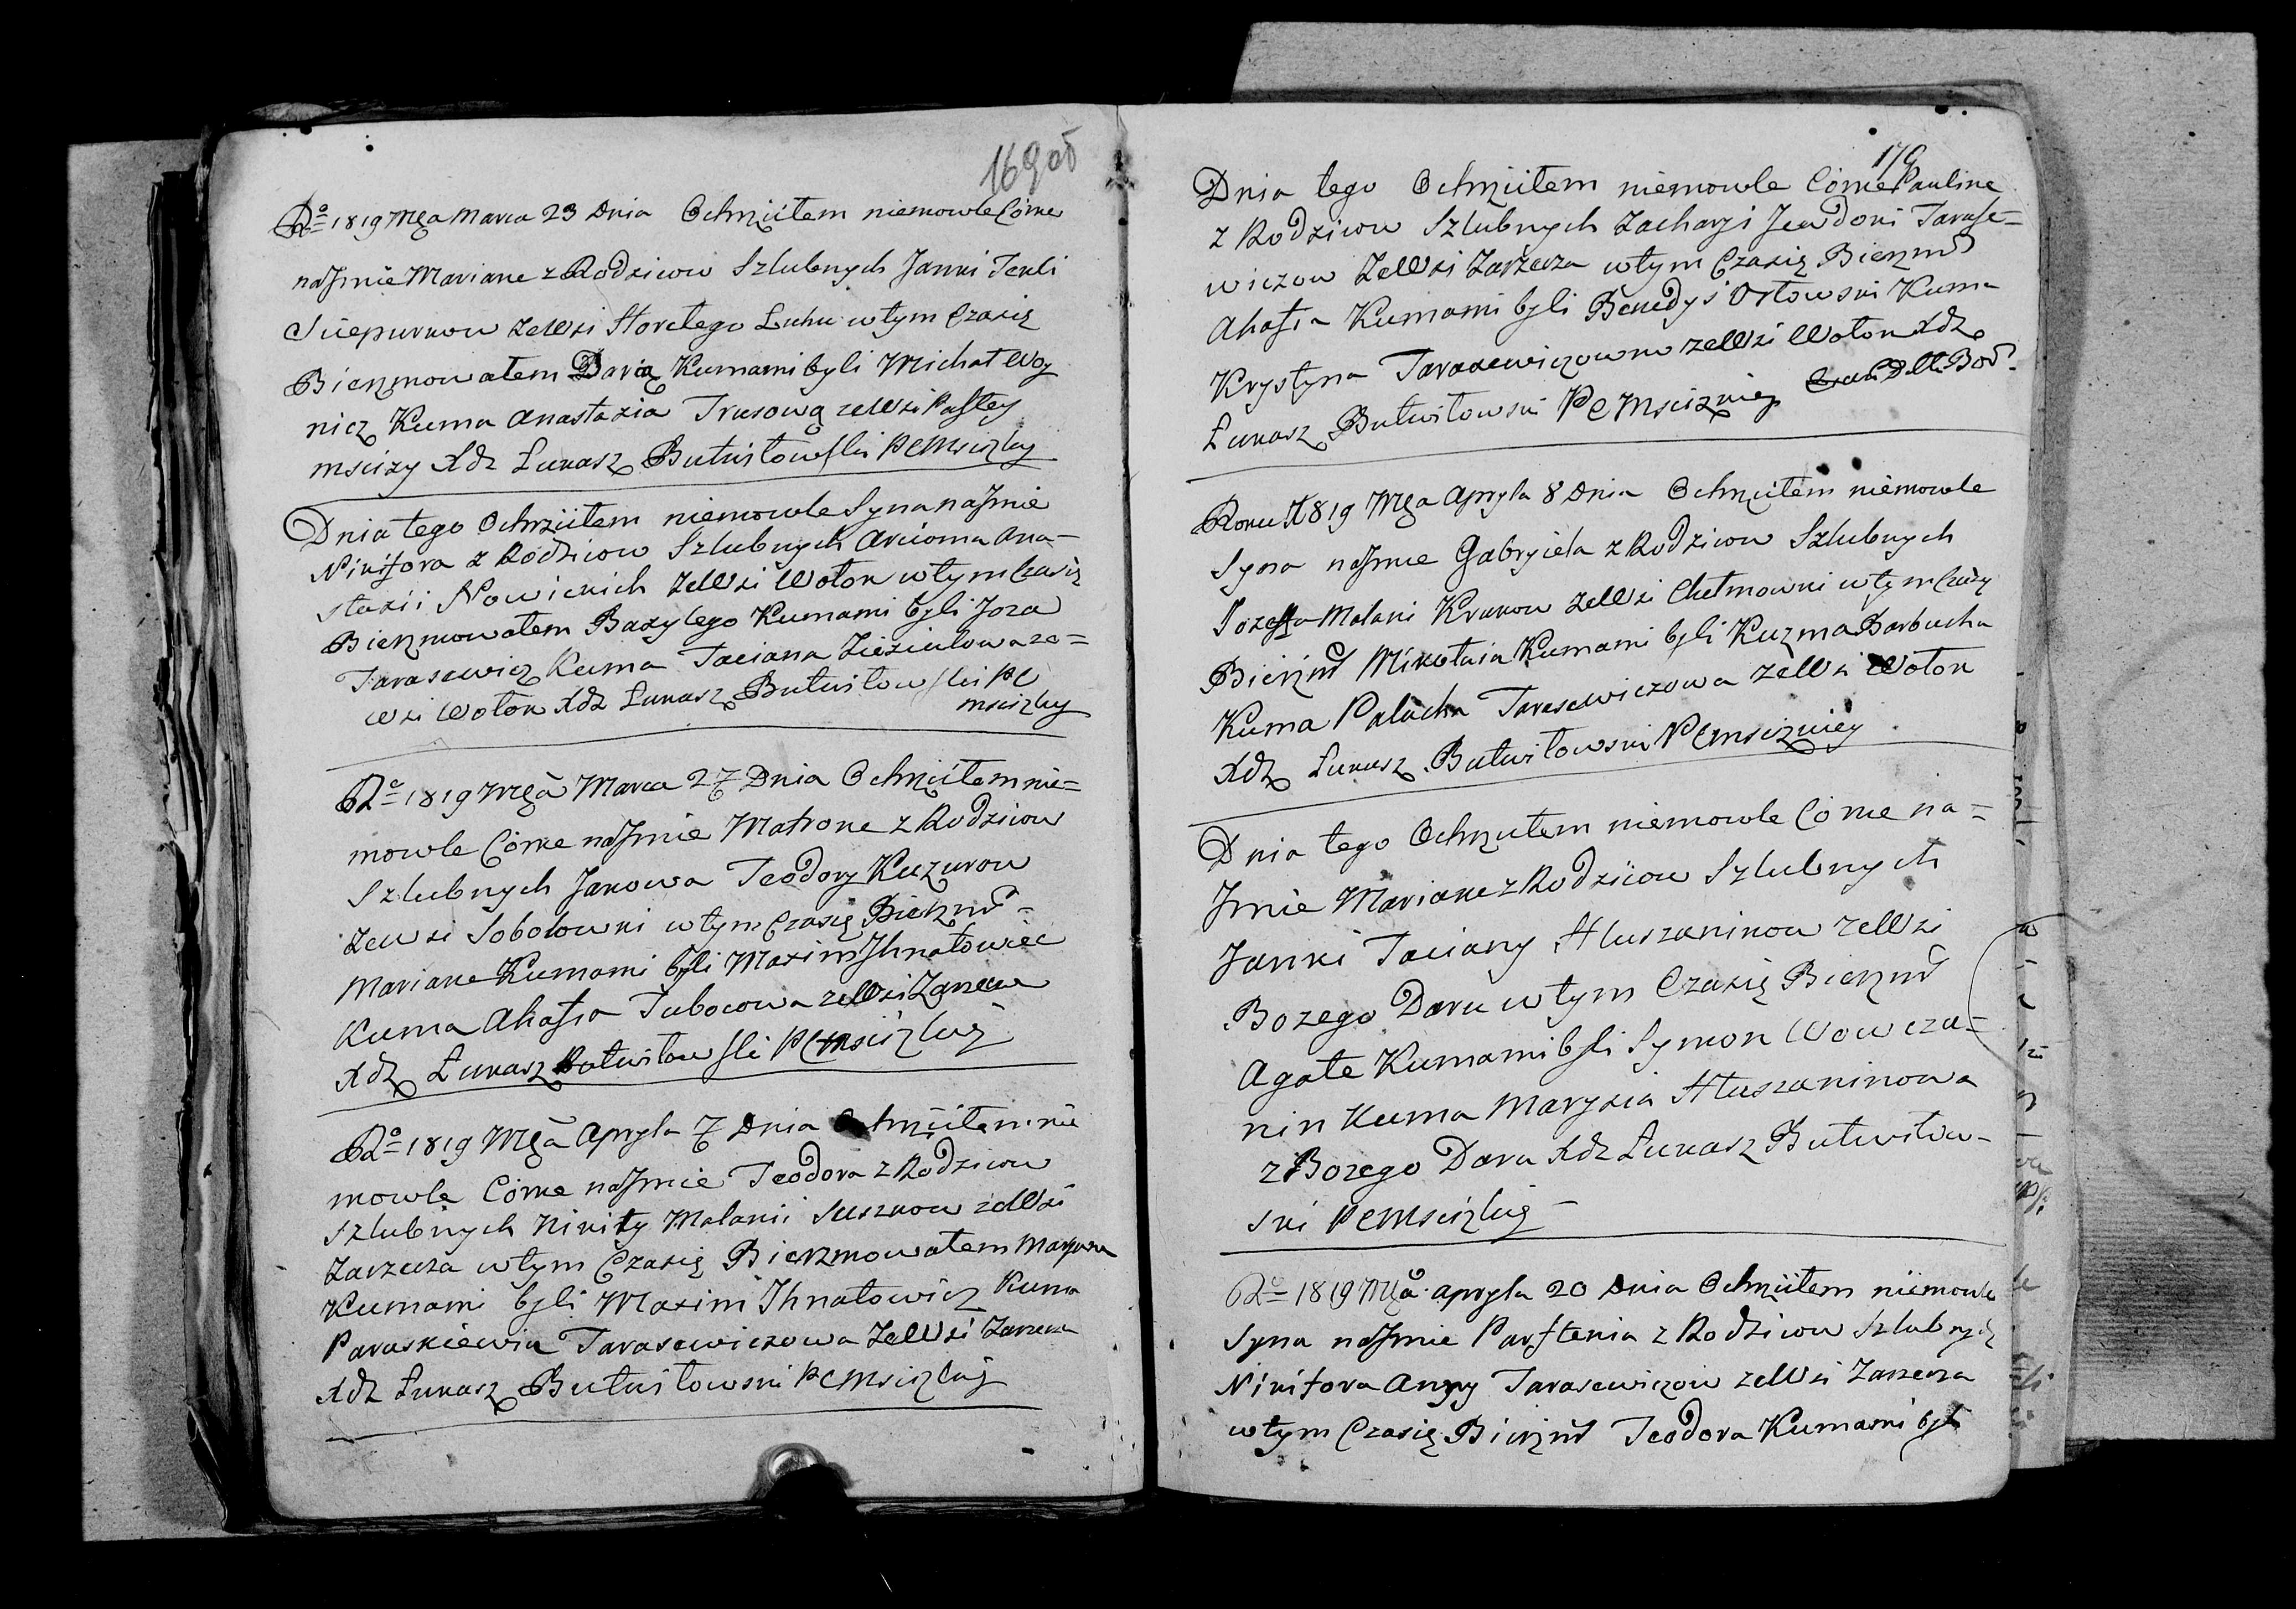 169 об
Rº 1819 Mca Marca 23 Dnia Ochrzciłem niemowle Corke
na Jmie Marianę z Rodzicow Szlubnych Janki Tekli
Sciepurkow ze Wsi Horelego Luhu w tym Czasię
Bierzmowałem Darią Kumami byli Michał Woy
nicz Kuma Anastazia Trusową ze Wsi Pastey
Mscizy Xdz Łukasz Butwiłowski P C Mscizky
Dnia tego Ochrzciłem niemowle Syna na Jmie
Nikifora z Rodzicow Szlubnych Arcioma Ana-
stazii Nowickich ze Wsi Wołok w tym Czasię
Bierzmowałem Bazylego Kumami byli Joza
Tarasewicz Kuma Taciana Zieziulowa ze=
Wsi Wołok Xdz Łukasz Butwiłowski P C
Mscizky
Rº 1819 Mca Marca 27 Dnia Ochrzciłem nie=
mowle Corke na Jmie Matrone z Rodzicow
Szlubnych Jakowa Teodory Kuzurow
ze Wsi Sobolowki w tym Czasię Bierzm=
Mariane Kumami byli Maxim Jhnatowicz
Kuma Ahafia Tubocowa ze Wsi Zarzecza
Xdz Łukasz Butwiłowski P C Mscizky
Rº 1819 Mca Apryla 7 Dnia Ochrzciłem nie
mowle Corke na Jmie Teodora z Rodzicow
Szlubnych Nikity Malanii Suszkow ze Wsi
Zarzecza w tym Czasię Bierzmowałem
Kumami byli Maxim Jhnatowicz Kuma
Paraskiewia Tarasewiczowa ze Wsi Zarzecza
Xdz Łukasz Butwiłowski P C Mscizky
170
Dnia tego Ochrzciłem niemowle Corke Pauline
z Rodzicow Szlubnych Zacharji Jewdoki Tarase=
wiczow ze Wsi Zarzecza w tym Czasię Bierzm
Ahafia Kumami byli Benedys Orłowski Kuma
Krystyna Tarasewiczowna ze Wsi Wołok Xdz
Łukasz Butwiłowski P C Mscizkiey
Roku 1819 Mca Apryla 8 Dnia Ochrzciłem niemowle
Syna na Jmie Gabryiela z Rodzicow Szlubnych
Jozefa Malani Krukow ze Wsi Chełmowki w tym Czasy
Bierzm Mikołaia Kumami byli Kuzma Barbucha
Kuma Palucha Tarasewiczowa ze Wsi Wołok
Xdz Łukasz Butwiłowski P C Mscizkiey
Dnia tego Ochrzciłem niemowle Corke na=
Jmie Mariane z Rodzicow Szlubnych
Janki Taciany Hluszaninow ze Wsi
Bozego Daru w tym Czasię Bierzm
Agate Kumami byli Symon Wowcza=
nin Kuma Marysia Hłuszaninowa
z Bozego Daru Xdz Łukasz Butwiłow-
ski P C Mscizky
Rº 1819 Mca Apryla 20 Dnia Ochrzciłem niemowle
Syna na Jmie Parftenia z Rodzicow Szlubnych
Nikifora Anny Tarasewiczow ze Wsi Zarzecza
w tym Czasię Bierzm Teodora Kumami byli